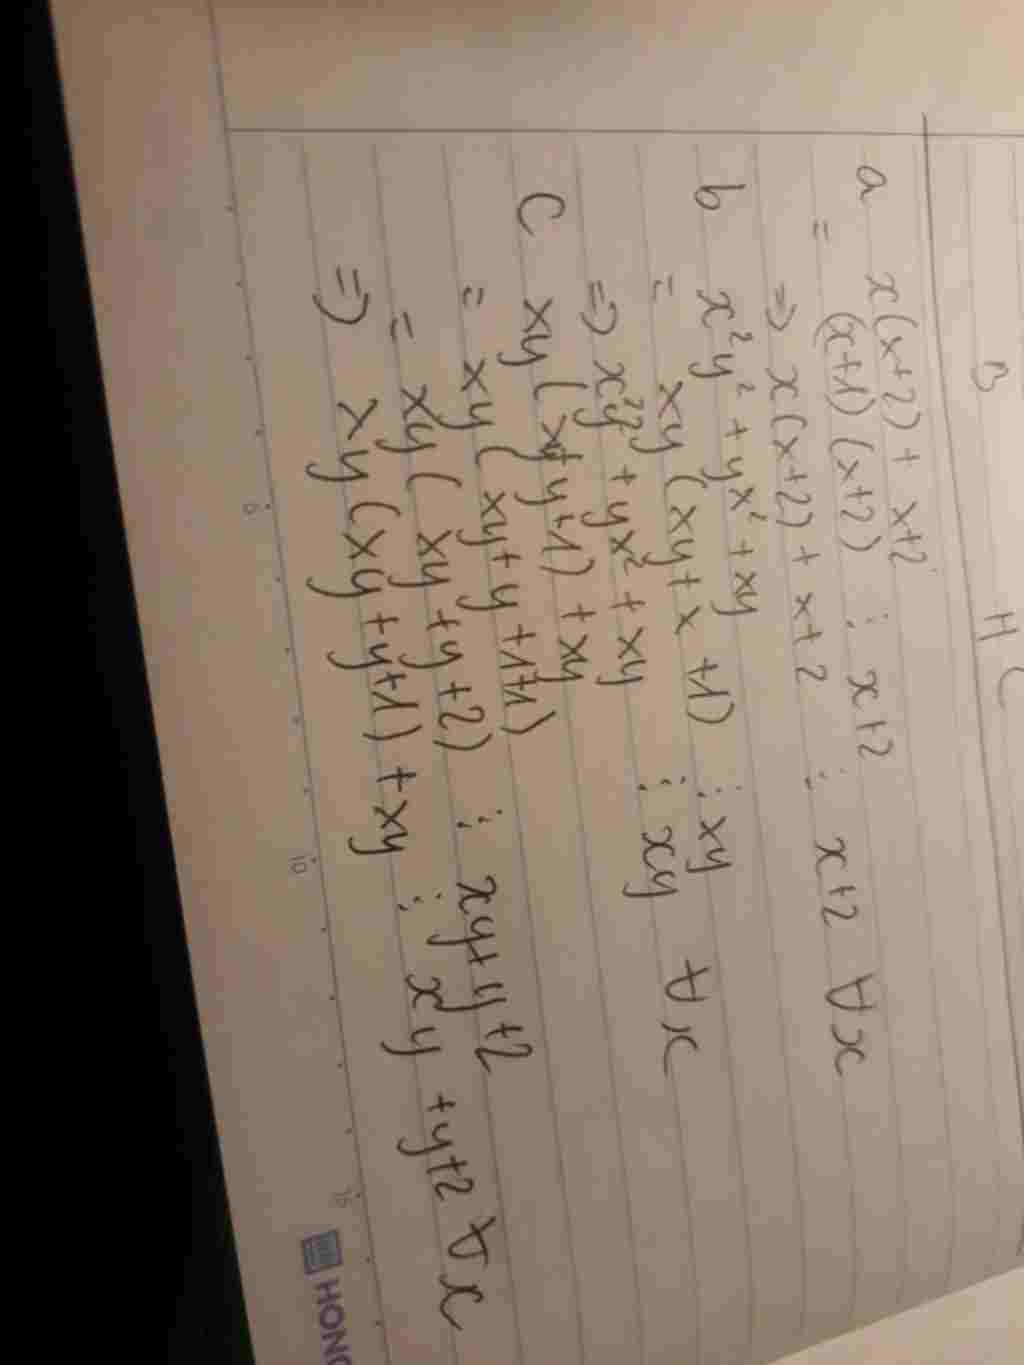 B H C
a x(x+2) + x+2
= (x+1)(x+2) ⋮ x+2
=> x(x+2) + x+2 ⋮ x+2 ∀x
b x²y² + yx² + xy
= xy (xy + x +1) ⋮ xy
=> x²y² + yx² + xy ⋮ xy ∀x
C xy(xy+y+1) + xy
= xy(xy+y+1+1)
= xy(xy+y+2) ⋮ xy+y+2
=> xy(xy+y+1)+xy ⋮ xy+y+2 ∀x
5 10 15
HONG